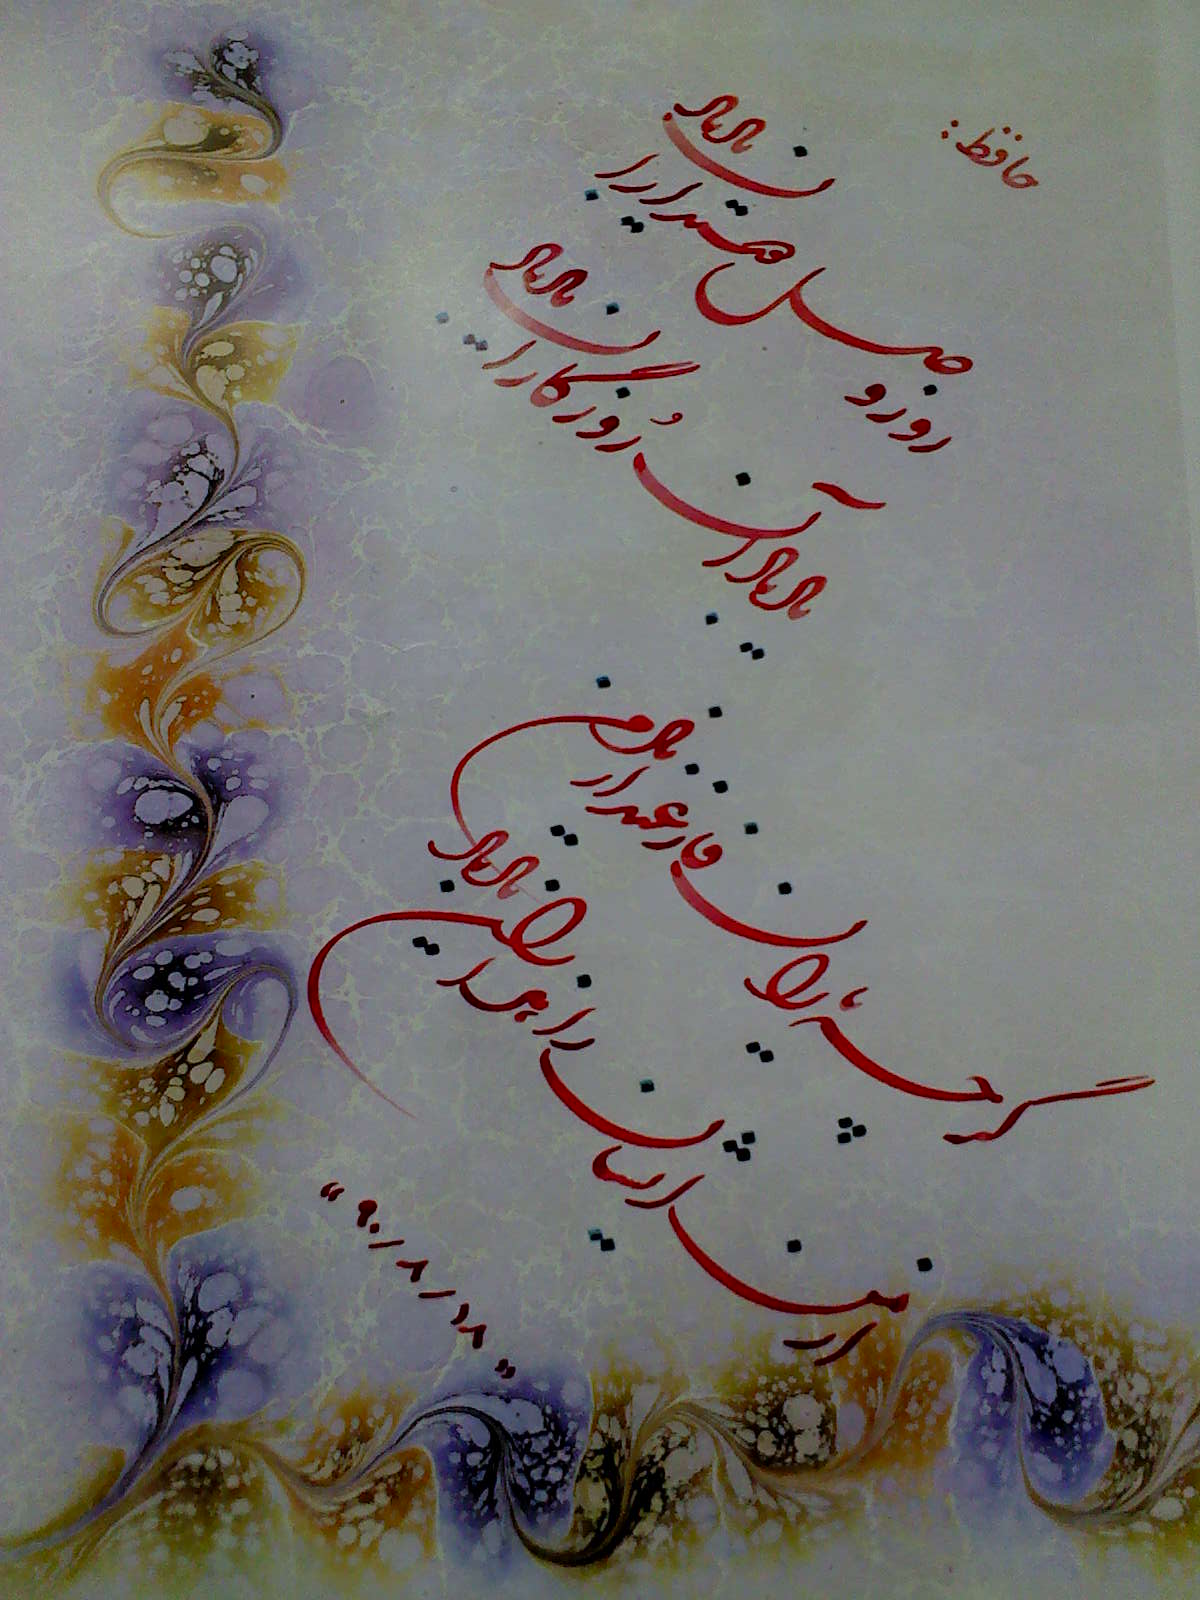 حافظ:
روز وصل دوستداران یاد باد
یاد باد آن رُوزگاران یاد باد
گرچه یاران فارغند از یاد من
از من ایشان را هزاران یاد باد
"۹۰/۸/۱۸"